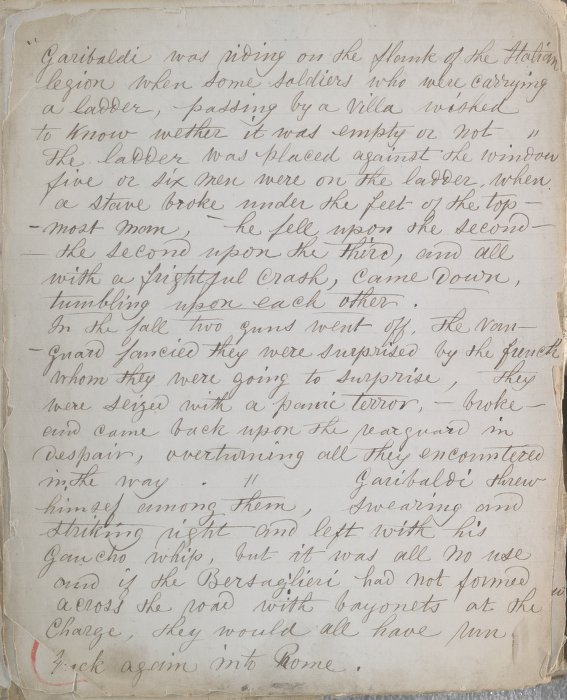 "Garibaldi was riding on the flank of the Italian
legion when some soldiers who were carrying
a ladder, passing by a Villa wished
to Know wether it was empty or not "
The ladder was placed against the window
five or six men were on the ladder, when
a stave broke under the feet of the top-
-most man, - he fell upon the second-
- the second upon the third, and all
with a frightful crash, came down,
tumbling upon each other.
In the fall two guns went off, The Van-
-guard fancied they were surprised by the french
whom they were going to surprise, They
were seized with a panic terror, - broke-
and came back upon the rearguard in
despair, overturning all they encountered
in the way . " Garibaldi threw
himsef among them, swearing and
striking right and left with his
Gaucho whip, but it was all no use
and if the Bersaglieri had not formed
across the road with bayonets at the
Charge, they would all have run
back again into Rome.